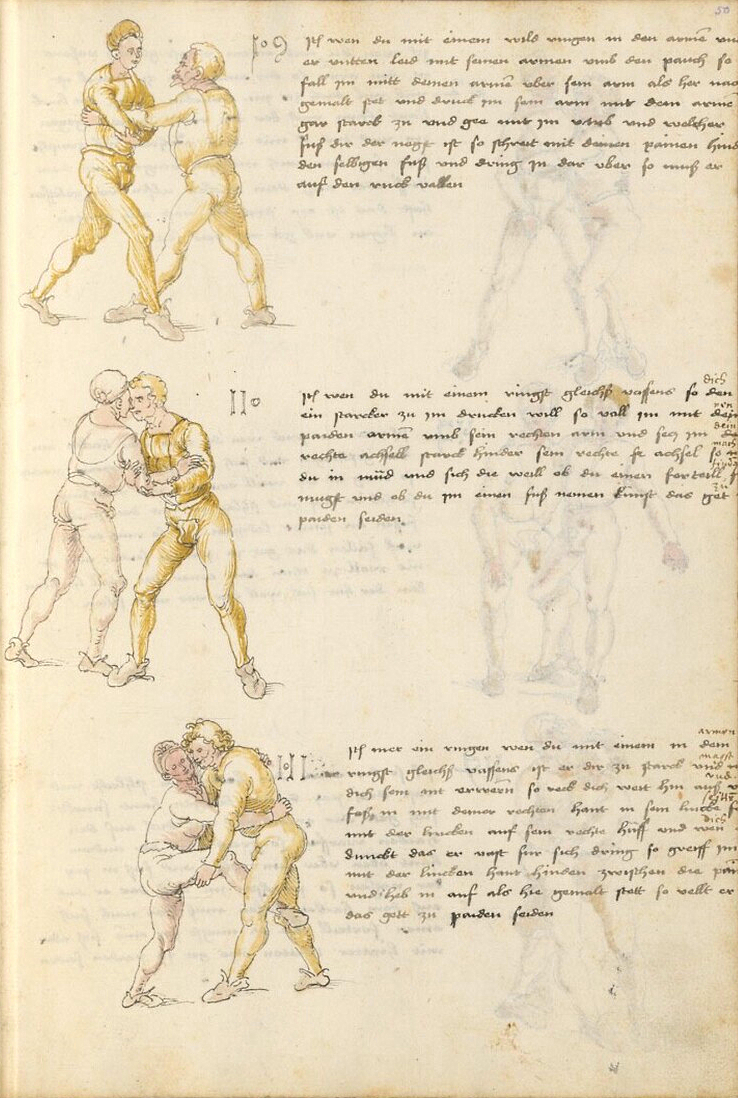 50
109
Itẽ wen du mit einem wild ringen in den armẽ
er vntten leid mit seinen armen vmb den pauch so
fall im mitt deinen armẽ vber sein arm als her nac
gemalt stet vnd druck im sein arm mit dein arme
gar starck zu vnd gee mit im vmb vnd welcher
fuß dir der negst ist so schreit mit deinen painen hind
den selbigen fuß vnd dring in dar vber so muß er
auf den ruck vallen
110
dich
Itẽ wen du mit einem ringst gleichß vassens so den
ein starcker zu im drucken will so vall im mit dein
paiden armẽ vmb sein rechten arm vnd secz im
rechte achsell starck hinder sein rechte achsel so
du in müd vnd sich die weill ob du einen forteill
mugst vnd ob du im einen fuß nemen kunst das get zu
paiden seiden
111
armen
Itẽ mer ein ringen wen du mit einem in dem
ringst gleichß vassens ist er dir zu starck vnd
dich sein nit erwern so reck dich weit hin auß
faß in mit deiner rechten hant in sein lincke
mit der lincken auf sein rechte hüff vnd wen dich
dunckt das er vast fur sich dring so greiff im
mit der lincken hant hinden zwischen die pain
vnd heb in auf als hie gemalt stett so vellt er
das gett zu paiden seiden